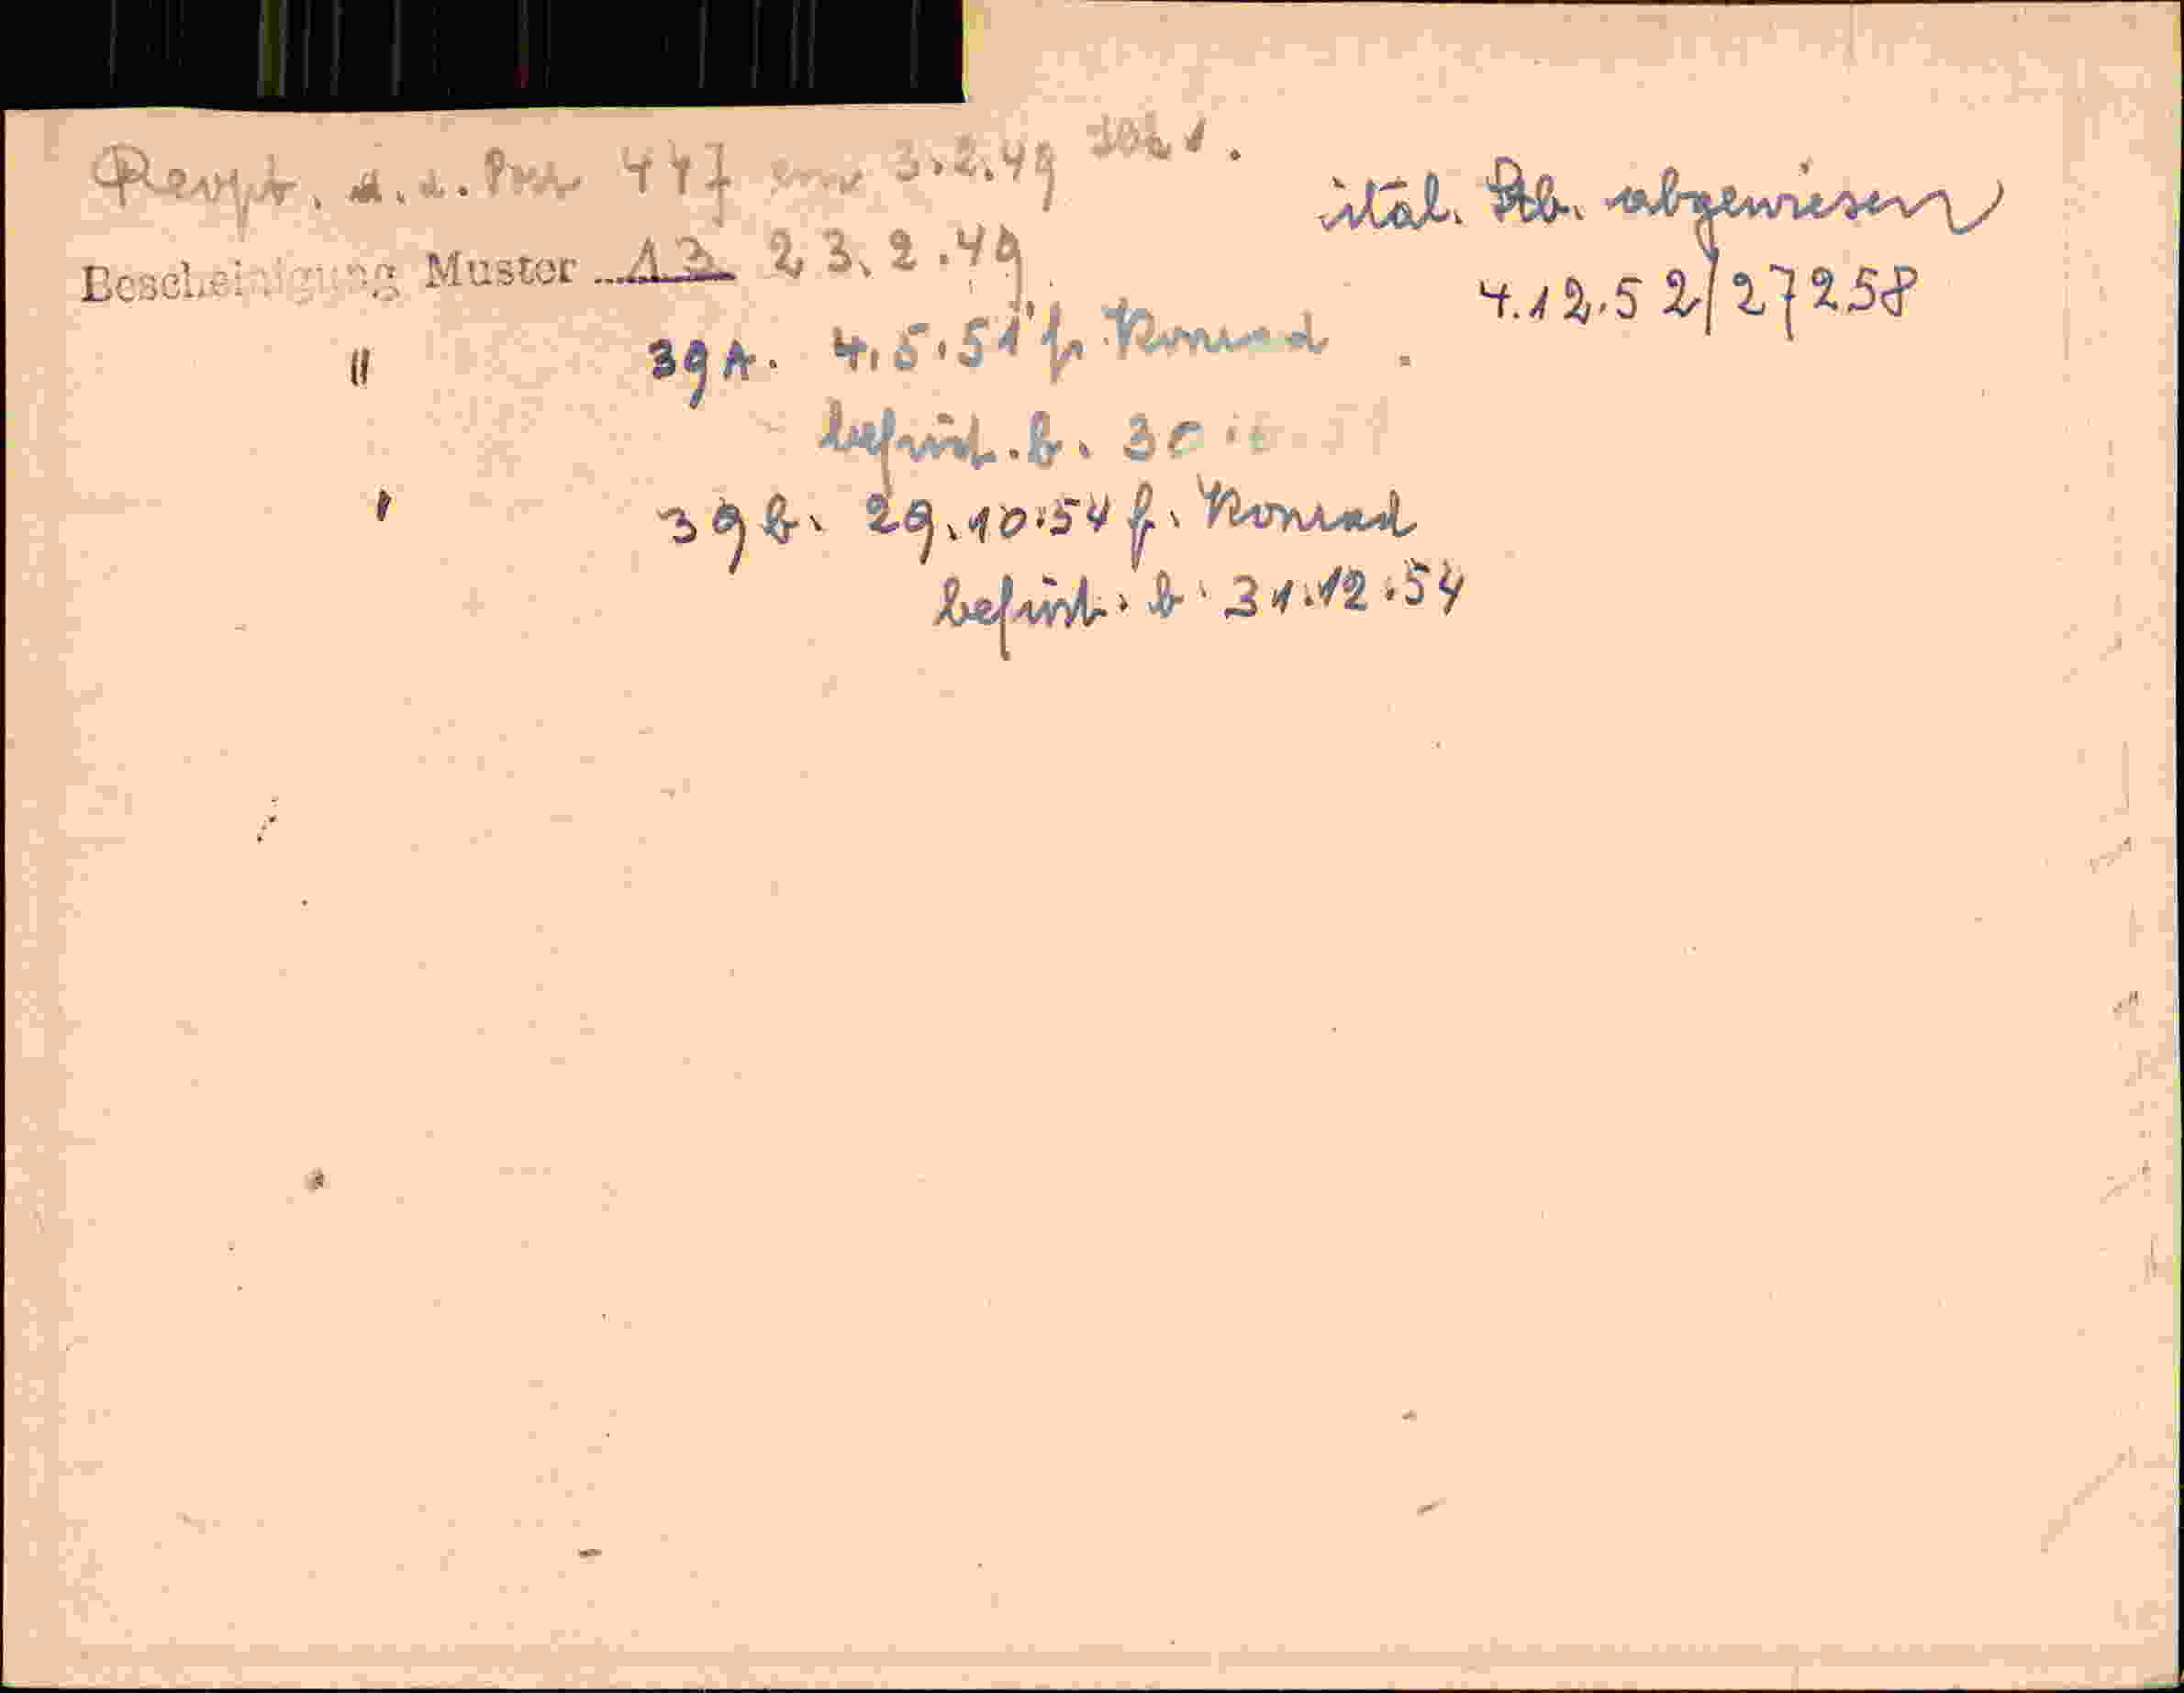 447 3.2.49
Bescheinigung Muster 13 23.2.49
ital. Stb. abgewiesen
4.12.52/27258
" 39A. 4.5.51 f. Konrad
befrist. b. 30
" 39b. 29.10.54 f. Konrad
befrist. b. 31.12.54